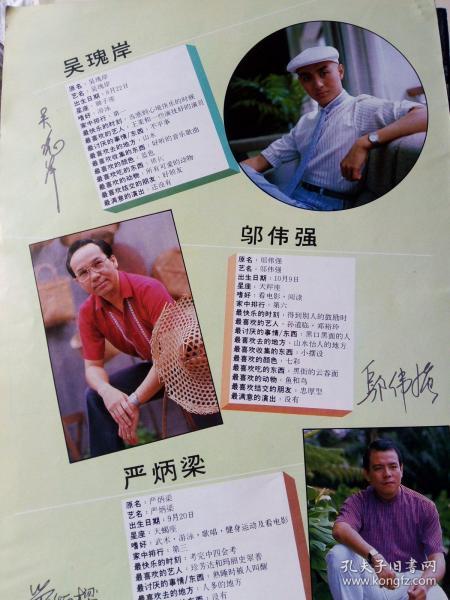 吴瑰岸
原名：吴瑰岸
艺名：吴瑰岸
出生日期：8月22日
星座：狮子座
嗜好：游泳
家中排行：第二
最快乐的时刻：当感到心境快乐的时候
最喜欢的艺人：主要和一些演技好的演员
最讨厌的事情/东西：不平事
最喜欢去的地方：山水
最喜欢收集的东西：好听的音乐歌曲
最喜欢的颜色：蓝色
最喜欢吃的东西：
最喜欢的动物：所有可爱的动物
最喜欢结交的朋友：好朋友
最满意的演出：还没有
邬伟强
原名：邬伟强
艺名：邬伟强
出生日期：10月9日
星座：天秤座
嗜好：看电影，阅读
家中排行：第六
最快乐的时刻：得到别人的鼓励时
最喜欢的艺人：孙道临，邓裕玲
最讨厌的事情/东西：黑口黑面的人
最喜欢去的地方：山水怡人的地方
最喜欢收集的东西：小摆设
最喜欢的颜色：七彩
最喜欢吃的东西：黑街的云吞面
最喜欢的动物：鱼和鸟
最喜欢结交的朋友：忠厚型
最满意的演出：没有
邬伟强
严炳梁
原名：严炳梁
艺名：严炳梁
出生日期：9月20日
星座：天蝎座
嗜好：武术，游泳，歌唱，健身运动及看电影
家中排行：第三
最快乐的时刻：考完中四会考
最喜欢的艺人：珍芳达和玛丽史翠普
最讨厌的事情/东西：熟睡时被人叫醒
最喜欢去的地方：人多的地方
最喜欢收集的东西：没有
孔夫子旧书网
kongfz.com